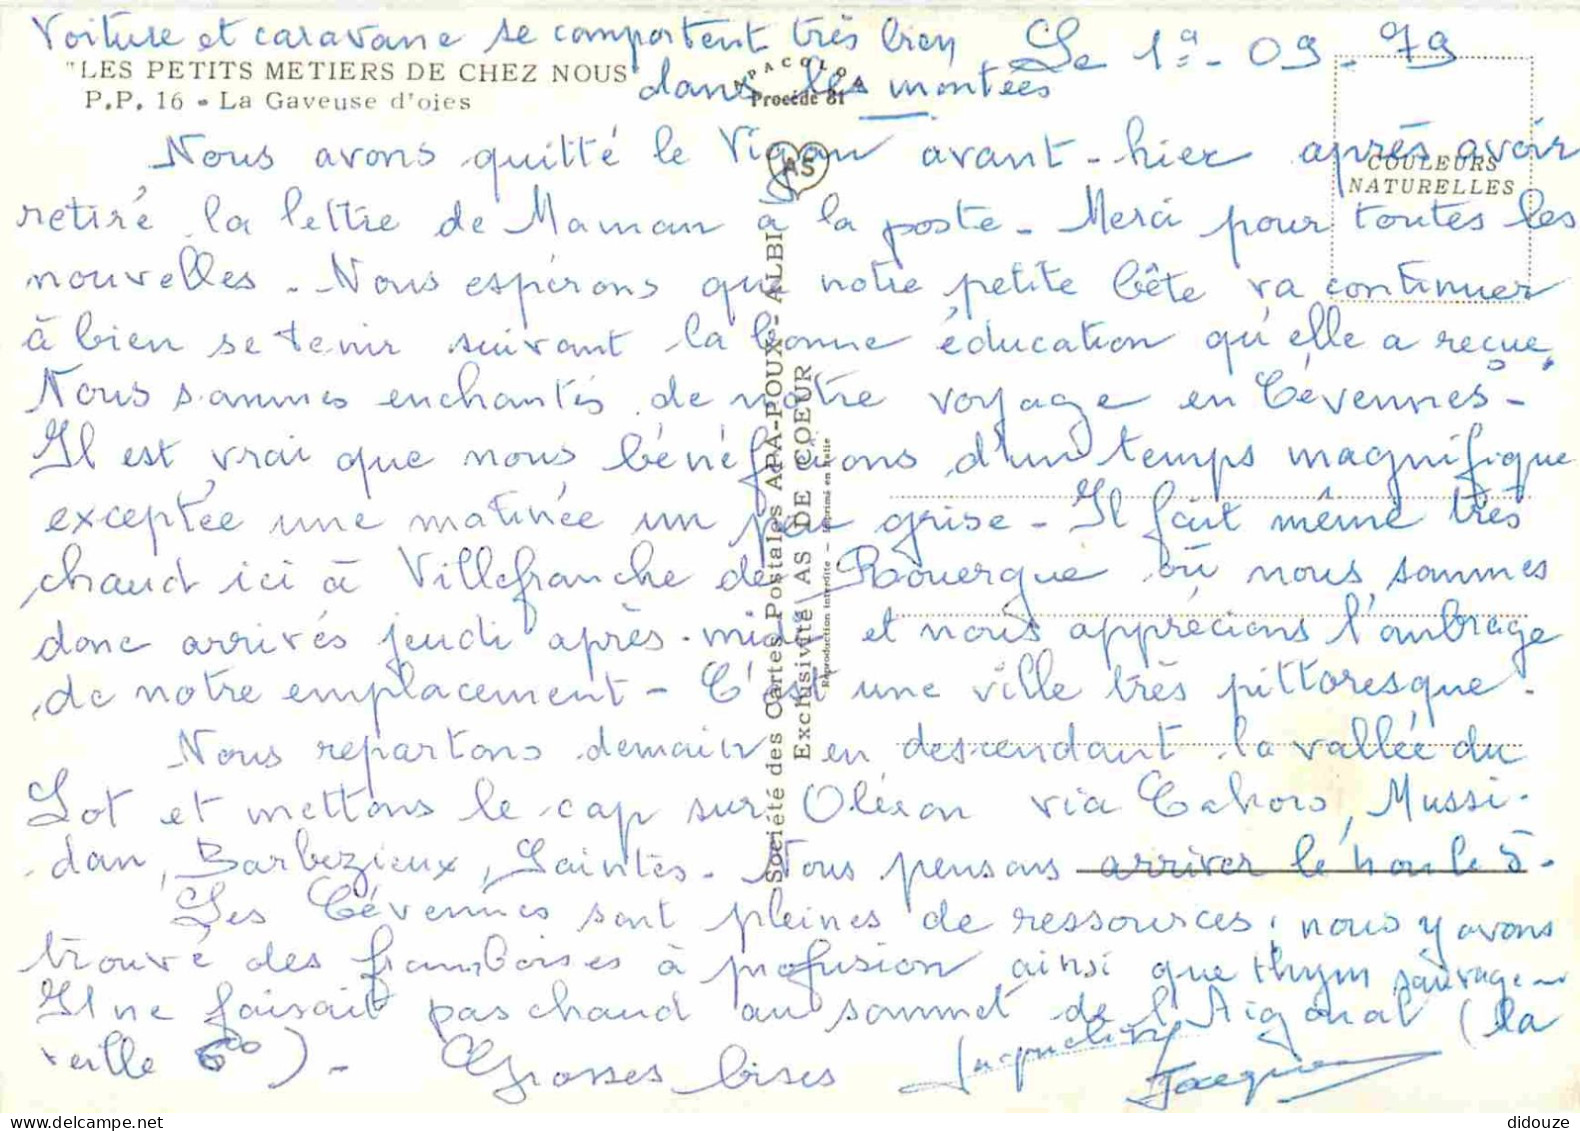 Voiture et caravane se comportent très bien
dans les montées
Le 1º - 09 - 79
"LES PETITS METIERS DE CHEZ NOUS"
P.P. 16 - La Gaveuse d'oies
APACOLOR
Procédé 81
AS
COULEURS
NATURELLES
Nous avons quitté le Vigan avant-hier après avoir
retiré la lettre de Maman à la poste - Merci pour toutes les
nouvelles - Nous espérons que notre petite bête va continuer
à bien se tenir suivant la bonne éducation qu'elle a reçue.
Nous sommes enchantés de notre voyage en Cévennes -
Il est vrai que nous bénéficions d'un temps magnifique
exceptée une matinée un peu grise - Il fait même très
chaud ici à Villefranche de Rouergue où nous sommes
donc arrivés jeudi après-midi et nous apprécions l'ombrage
de notre emplacement - C'est une ville très pittoresque.
Nous repartons demain en descendant la vallée du
Lot et mettons le cap sur Oléron via Cahors, Mussi-
dan, Barbezieux, Saintes - Nous pensons arriver le 5 -
Les Cévennes sont pleines de ressources, nous y avons
trouvé des framboises à profusion ainsi que thym sauvage -
Il ne faisait pas chaud au sommet de l'Aigoual (la
veille 6°) - Grosses bises
Jacqueline
Jacques
Société des Cartes Postales APA-POUX - ALBI
Exclusivité AS DE COEUR
Reproduction interdite - Imprimé en Italie
didouze